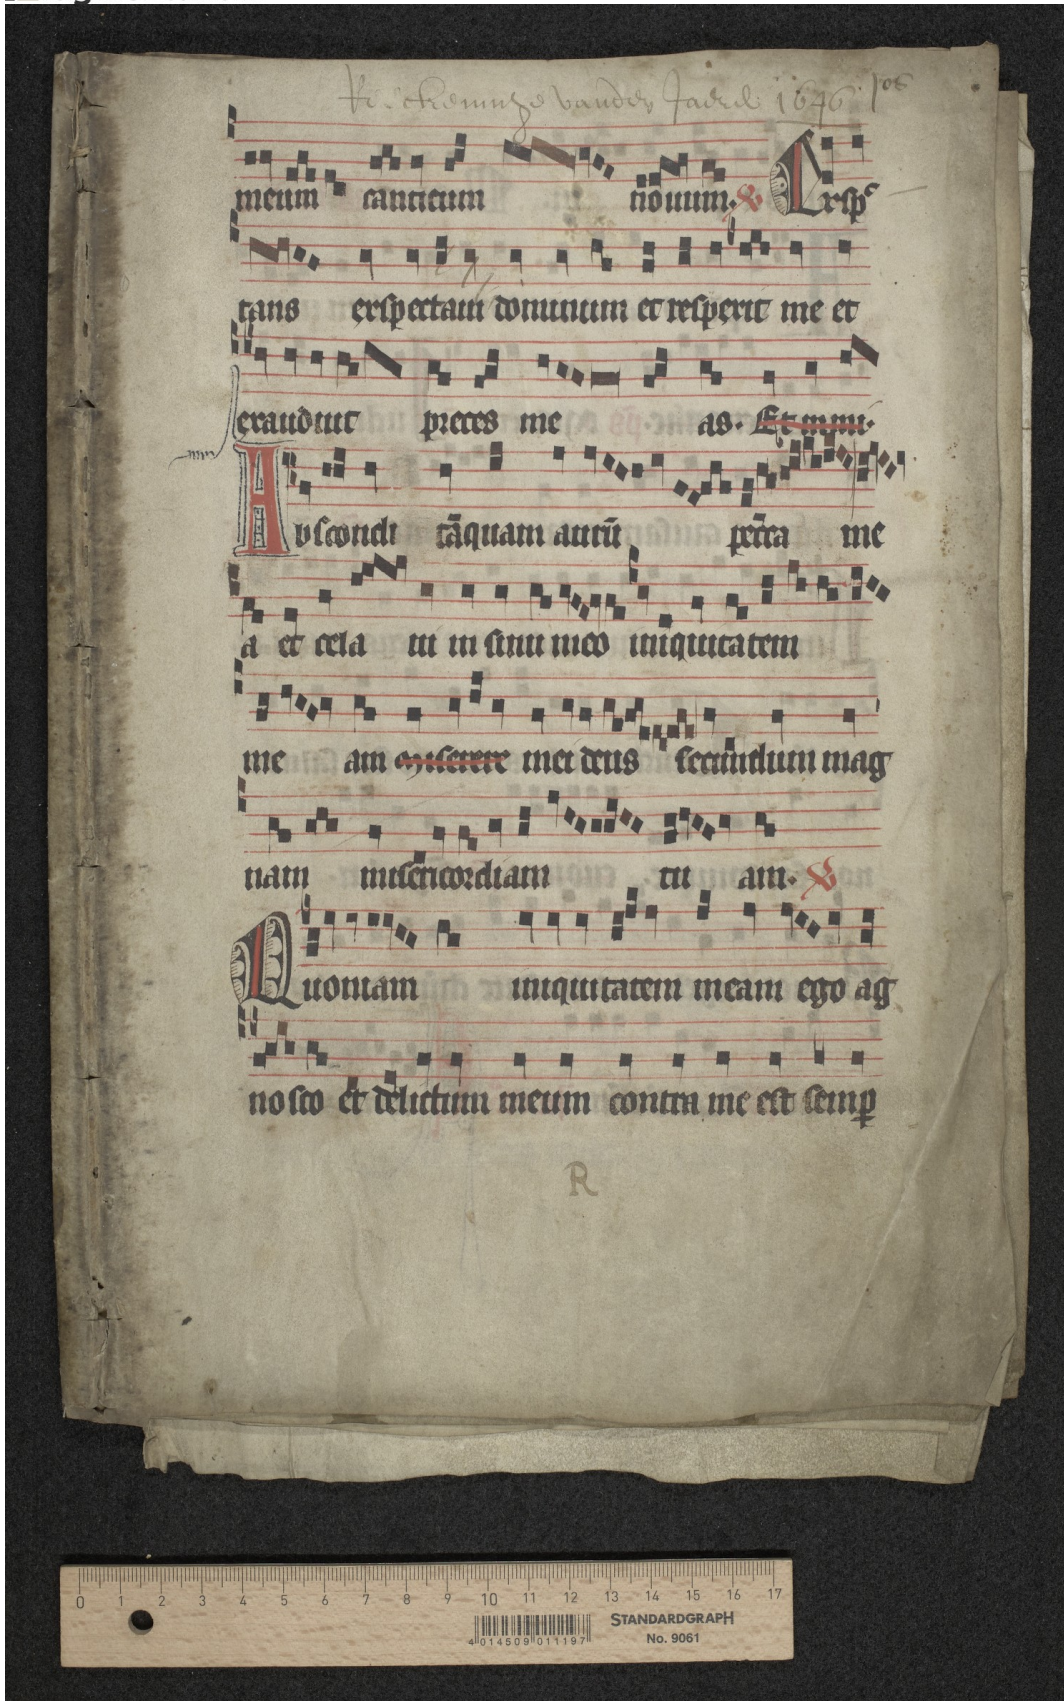 Reckeninge vander Jaere 1646
meum canticum nouum. ℣ Exspec
tans exspectaui dominum et respexit me et
exaudiuit preces me as. Et inmi.
Abscondi tāquam aurū pctā me
a et cela ui in sinu meo iniquitatem
me am miserere mei deus secundum mag
nam misericordiam tu am. ℣
Quoniam iniquitatem meam ego ag
nosco et delictum meum contra me est semꝑ
R
0 1 2 3 4 5 6 7 8 9 10 11 12 13 14 15 16 17
4 014509 011197
STANDARDGRAPH
No. 9061